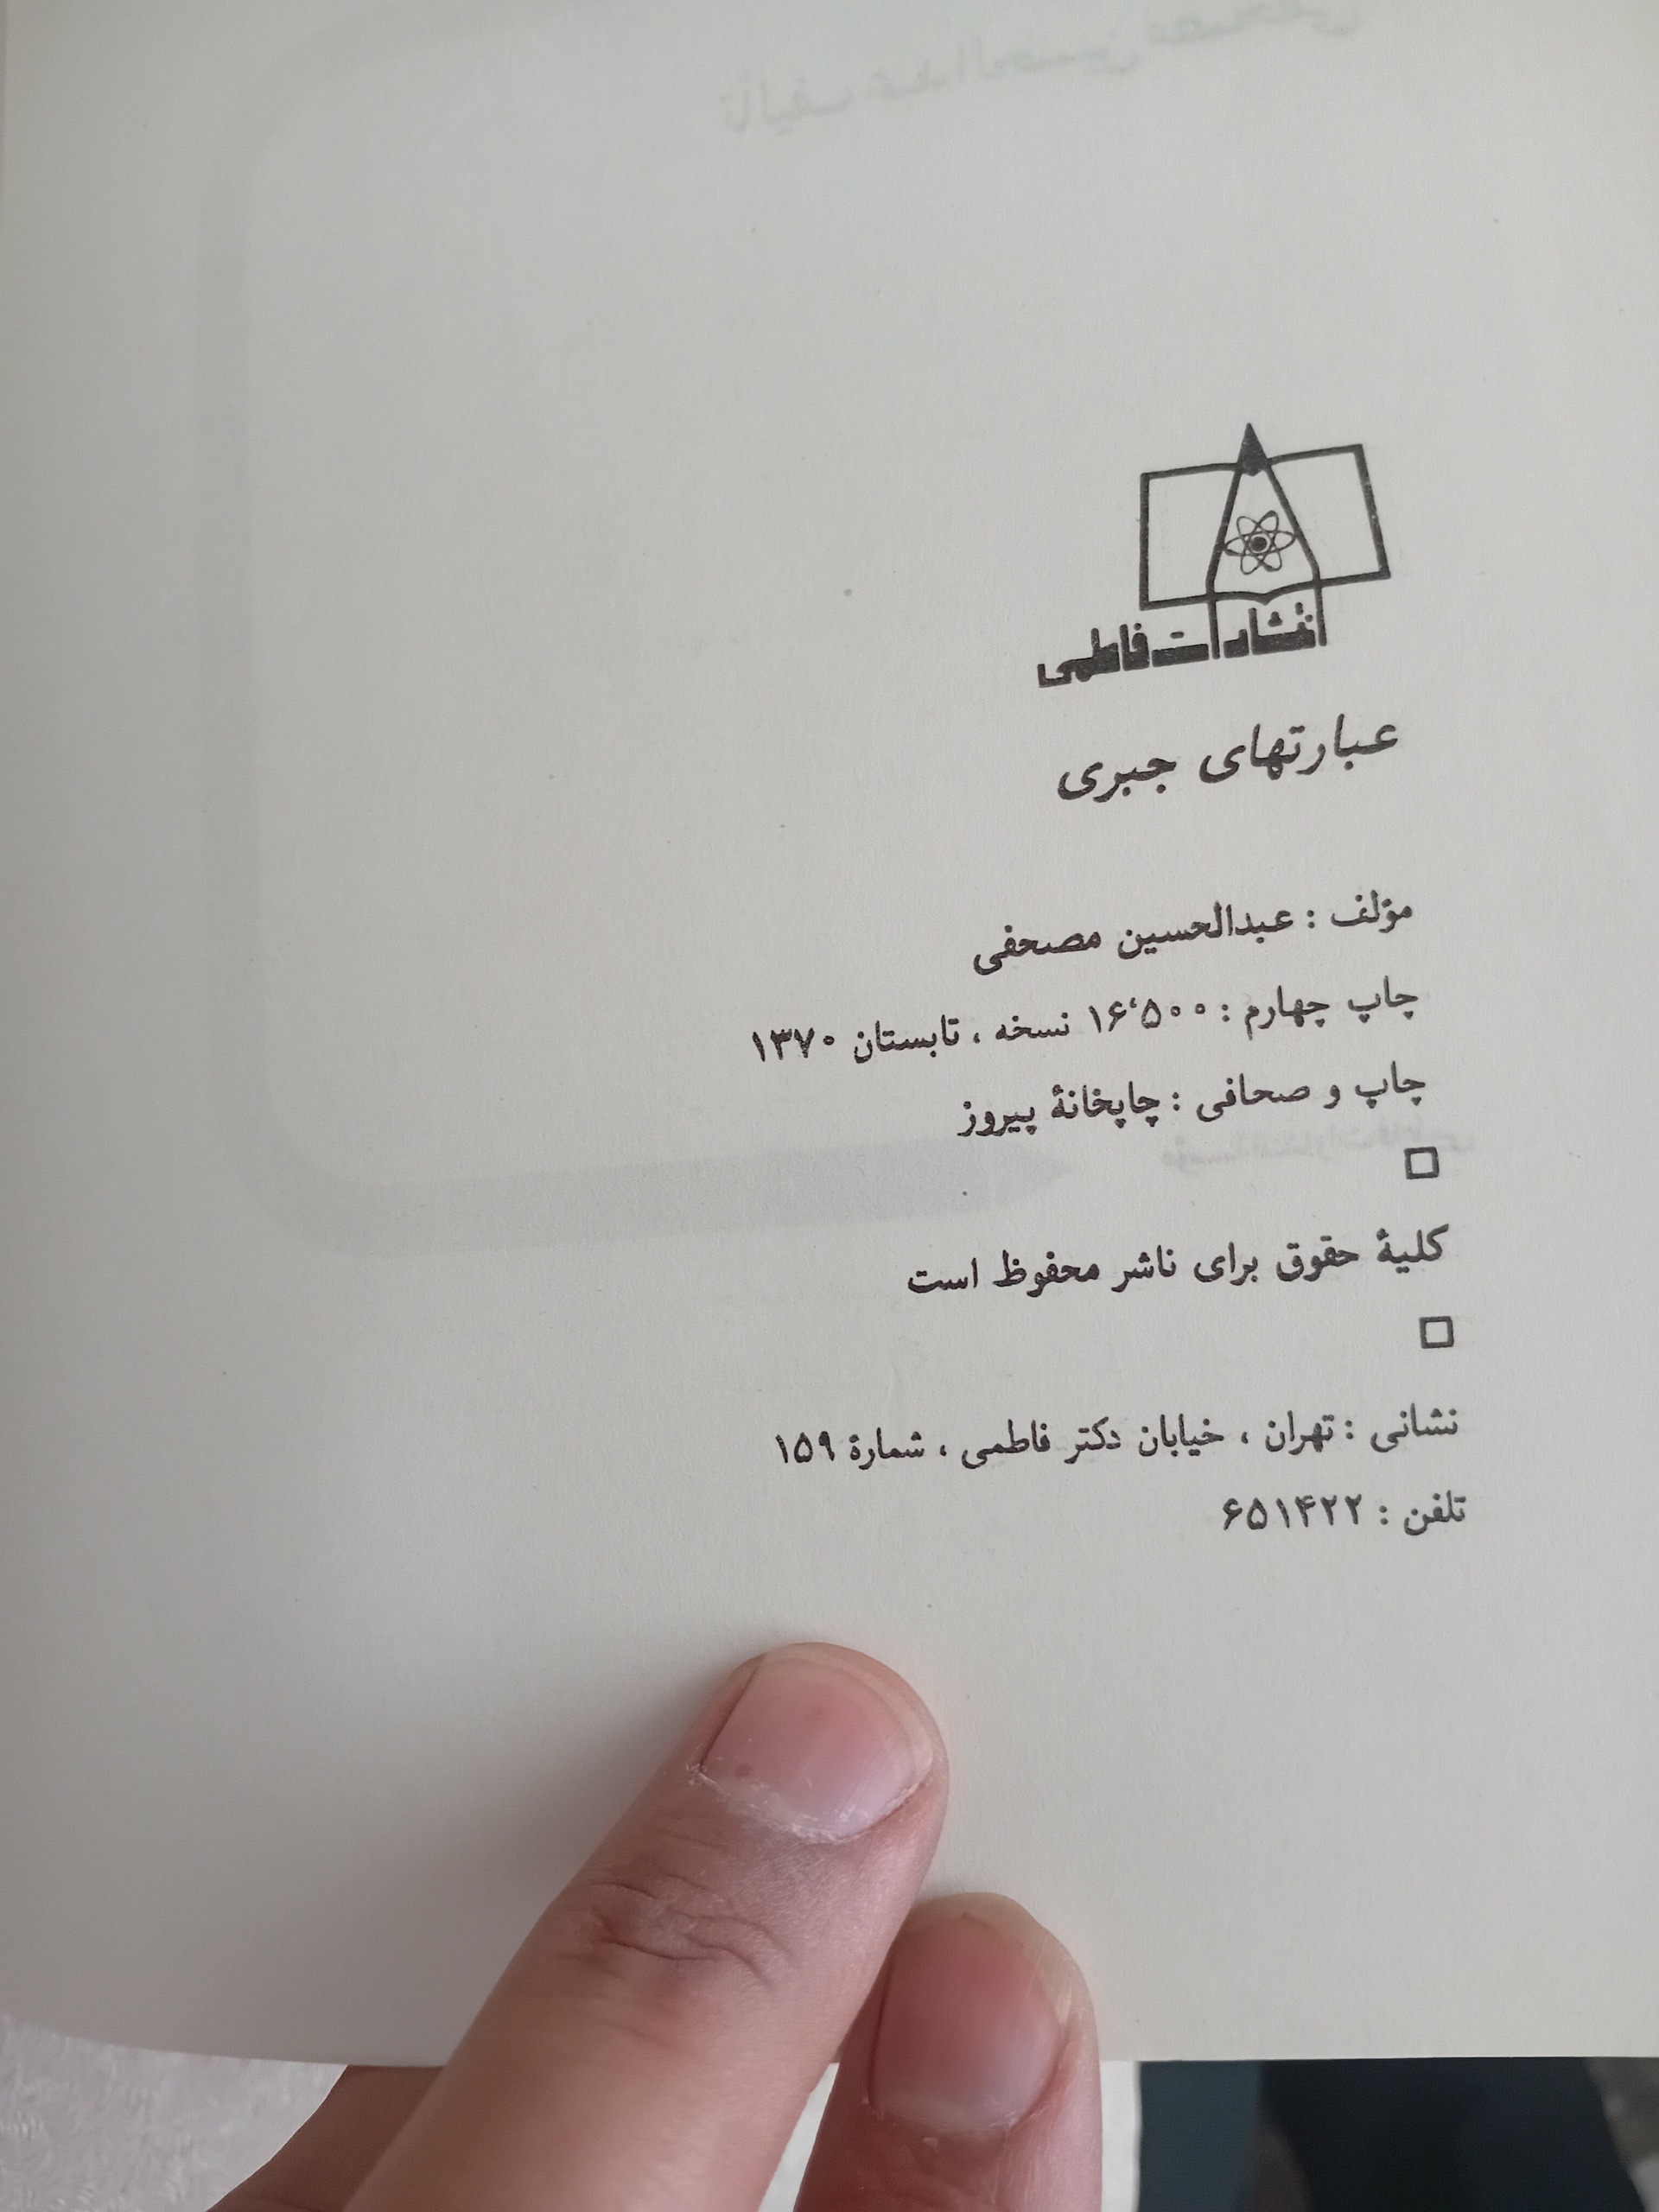 تألیف عبدالحسین مصحفی
انتشارات فاطمی
عبارتهای جبری
مؤلف : عبدالحسین مصحفی
چاپ چهارم : ۱۶٬۵۰۰ نسخه ، تابستان ۱۳۷۰
چاپ و صحافی : چاپخانهٔ پیروز
مؤسسهٔ انتشارات فاطمی
□
کلیهٔ حقوق برای ناشر محفوظ است
□
نشانی : تهران ، خیابان دکتر فاطمی ، شمارهٔ ۱۵۹
تلفن : ۶۵۱۴۲۲